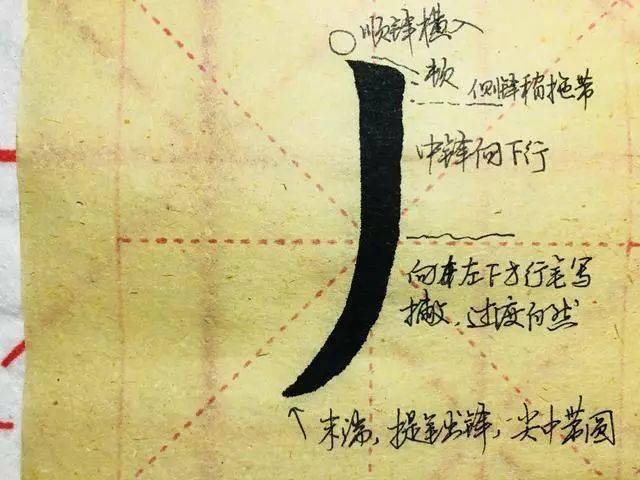 顺锋横入
顿
侧锋稍拖带
中锋向下行
向左下方行笔写
撇,过度自然
末端,提笔出锋,尖中带圆